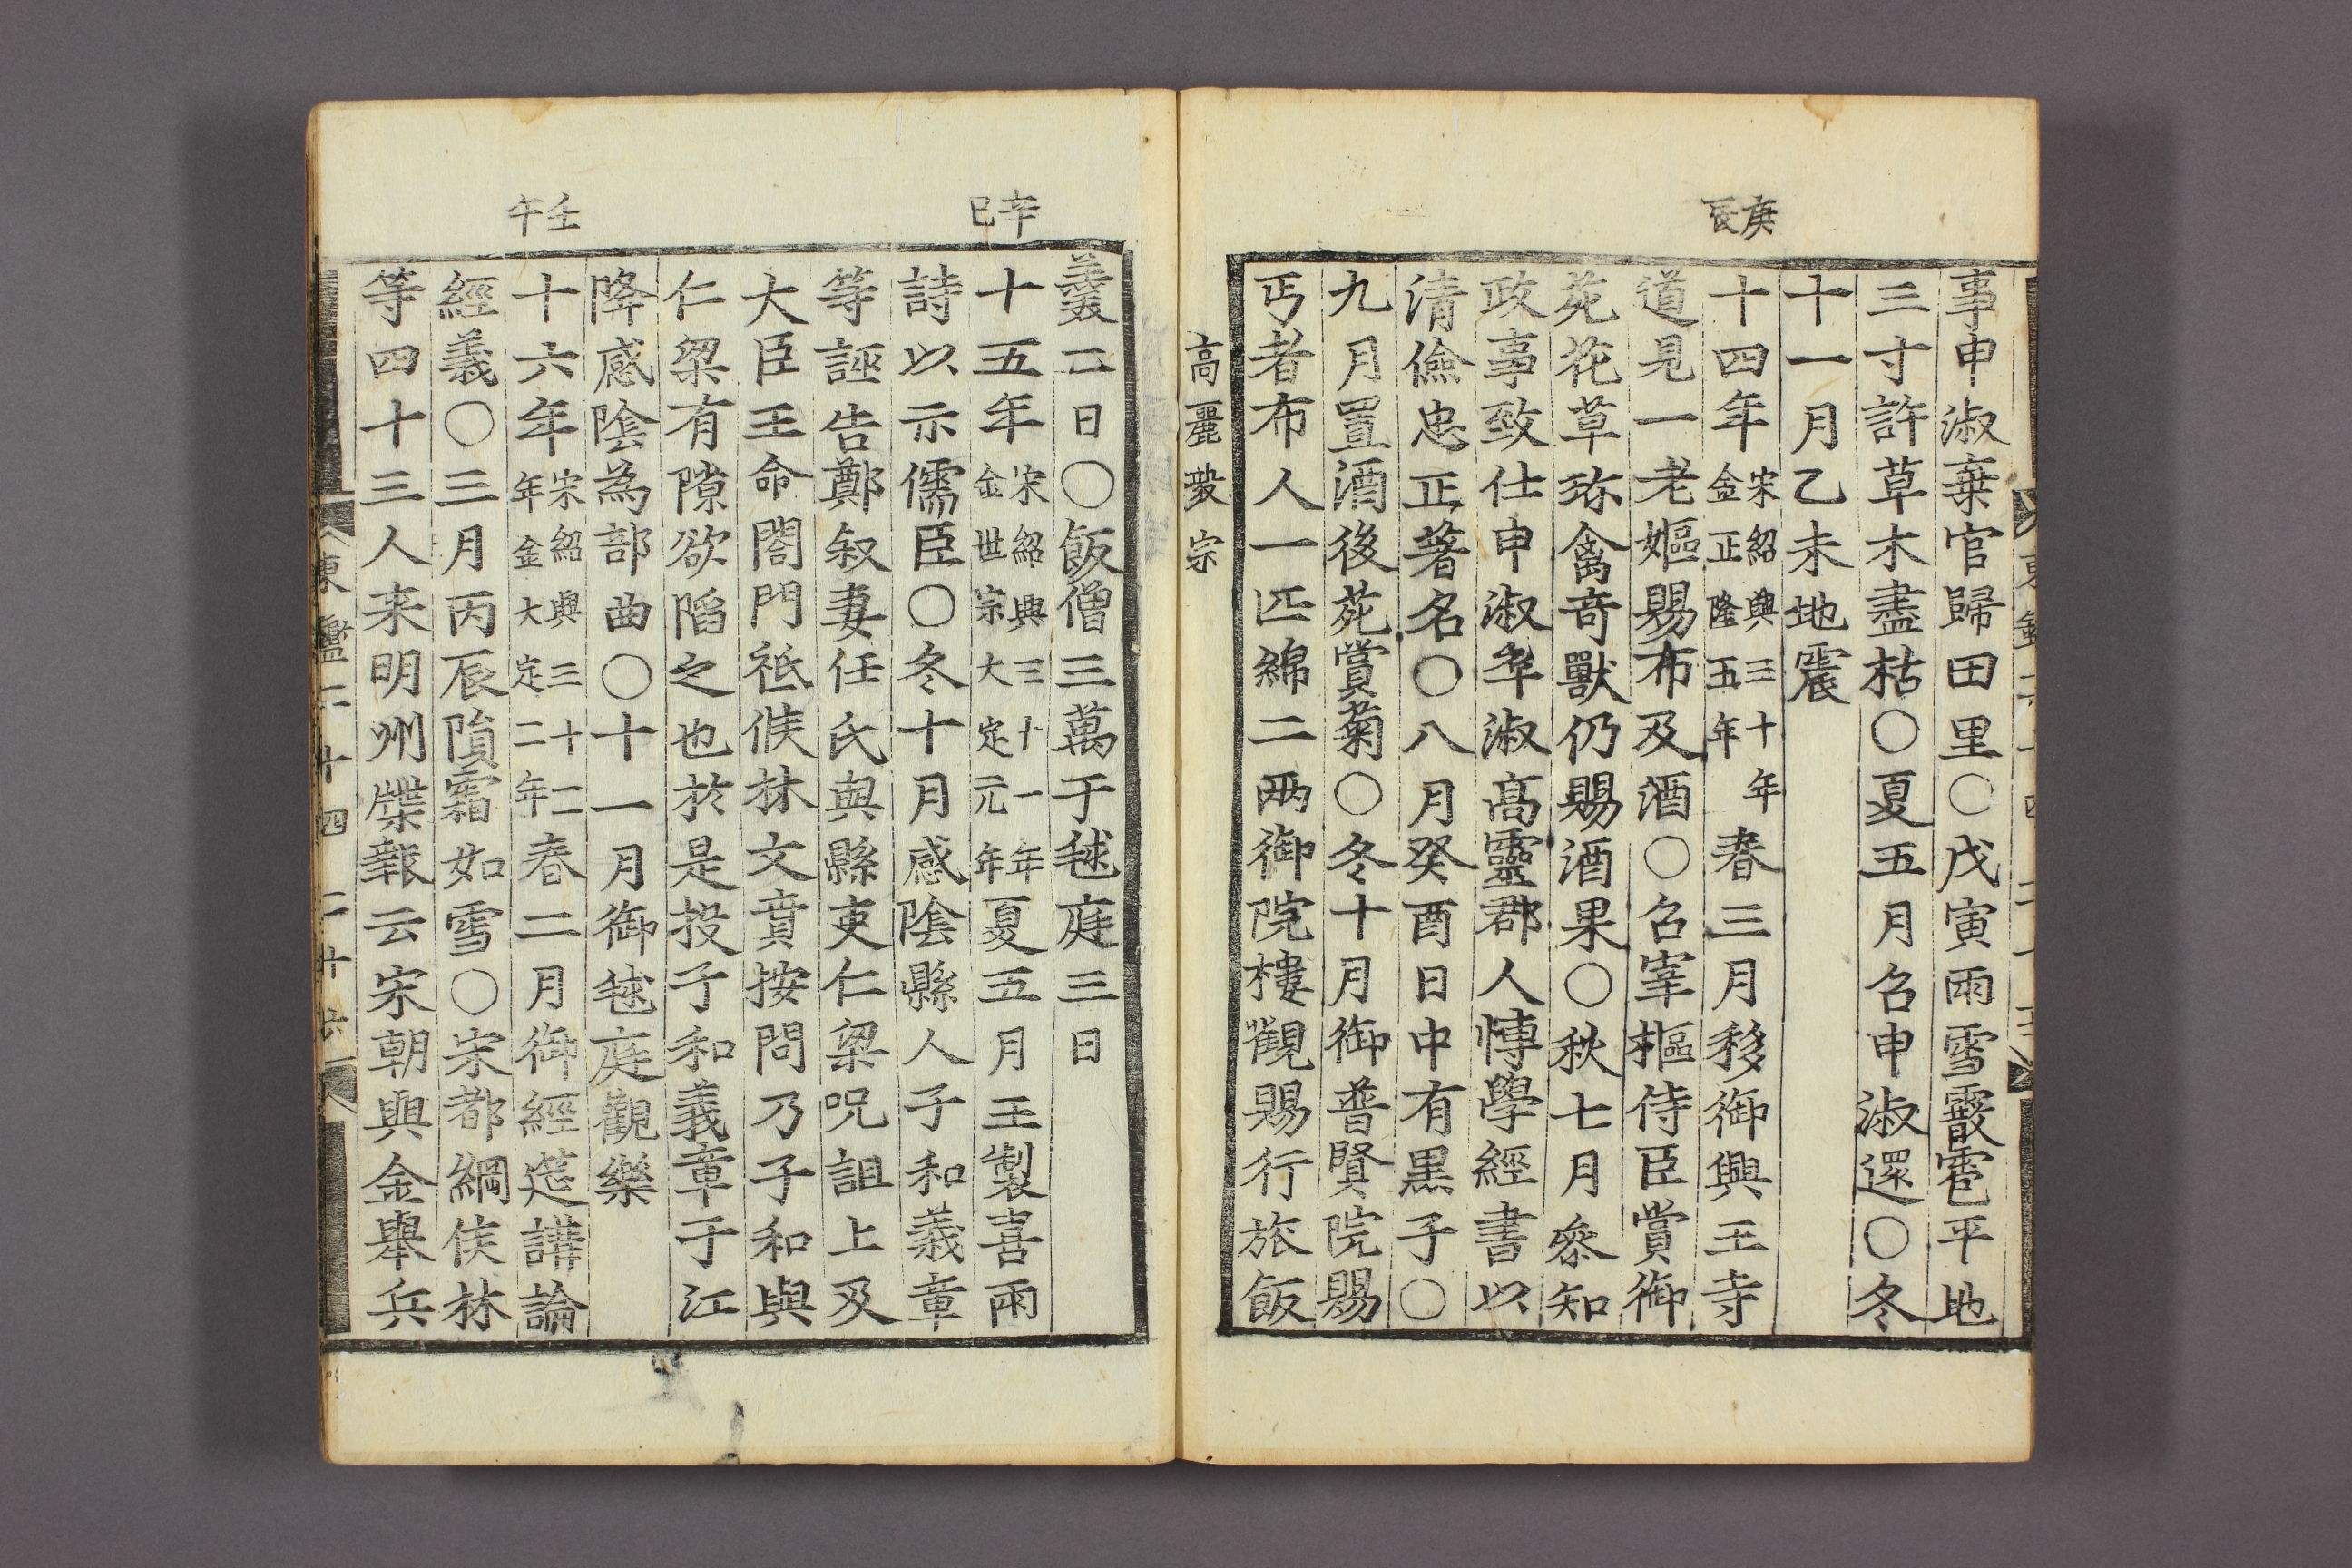 庚辰
事申淑棄官歸田里○戊寅雨雪霰雹平地
三寸許草木盡枯○夏五月召申淑還○冬
十一月乙未地震
十四年宋紹興三十年金正隆五年春三月移御興王寺
道見一老嫗賜布及酒○召宰樞侍臣賞御
苑花草珎禽奇獸仍賜酒果○秋七月叅知
政事致仕申淑卒淑高靈郡人博學經書以
清儉忠正著名○八月癸酉日中有黒子○
九月置酒後苑賞菊○冬十月御普賢院賜
丐者布人一匹綿二两御院樓觀賜行旅飯
高麗毅宗
辛巳
壬午
羹二日○飯僧三萬于毬庭三日
十五年宋紹興三十一年金世宗大定元年夏五月王製喜雨
詩以示儒臣○冬十月感陰縣人子和義章
等誣告鄭叙妻任氏與縣吏仁梁呪詛上及
大臣王命閤門祗候林文賁按問乃子和與
仁梁有隙欲陷之也於是投子和義章于江
降感陰為部曲○十一月御毬庭觀樂
十六年宋紹興三十二年金大定二年春二月御經筵講論
經義○三月丙辰隕霜如雪○宋都綱侯林
等四十三人来明州牒報云宋朝與金舉兵
東鑑二十四 二十六